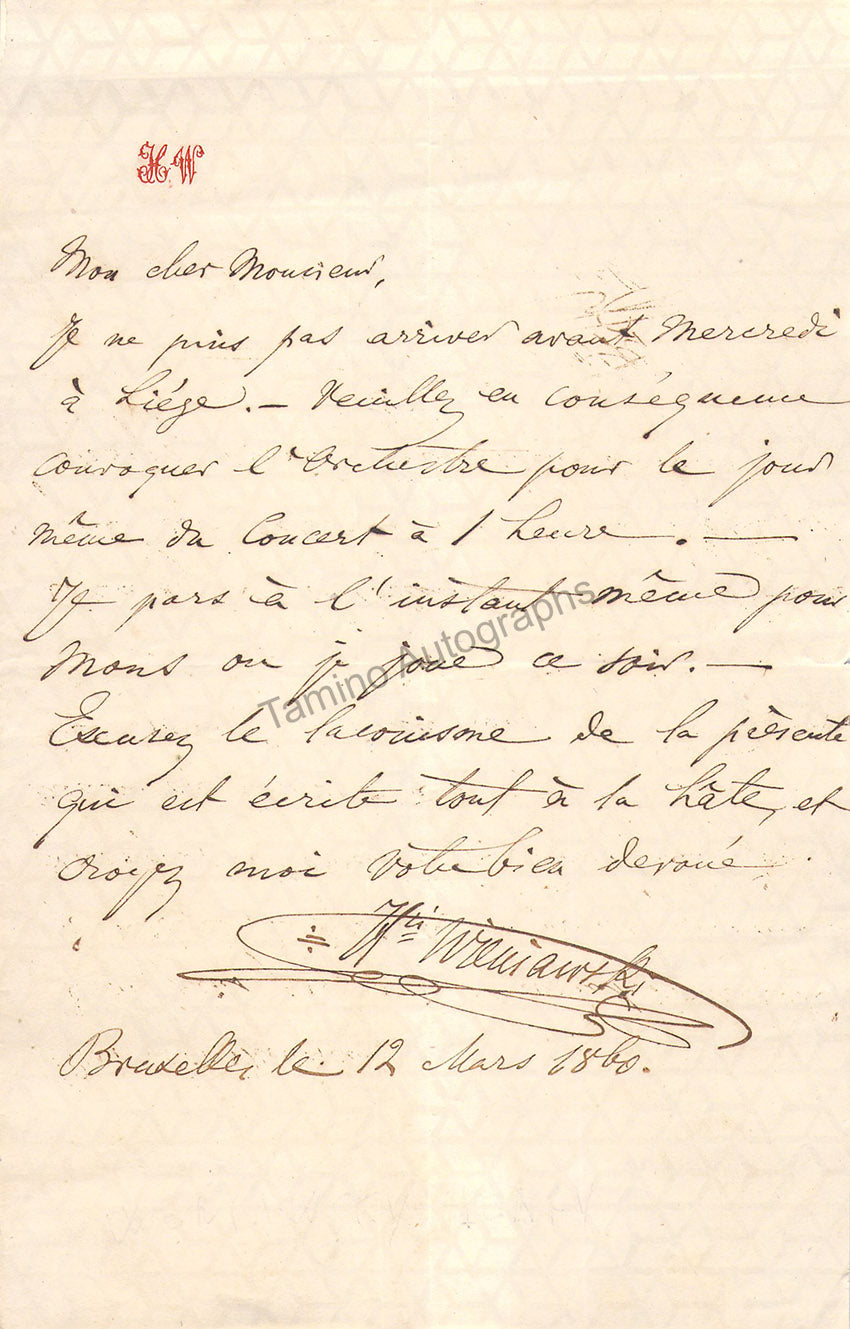 H W
Mon cher Monsieur,
Je ne puis pas arriver avant Mercredi
à Liége. — Veuillez en conséquence
convoquer l'Orchestre pour le jour
même du Concert à 1 heure. —
Je pars à l'instant même pour
Mons ou je joue ce soir. —
Excusez le laconisme de la présente
qui est écrite tout à la hâte, et
croyez moi votre bien dévoué
Hri Wieniawski
Bruxelles le 12 Mars 1860.
Tamino Autographs